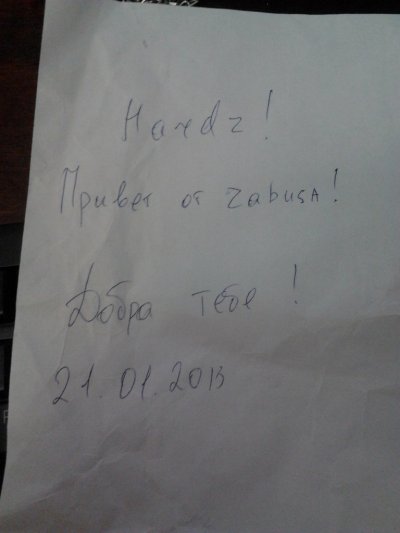 Hardz!
Привет от zabusA!
Добра тебе!
21.01.2013